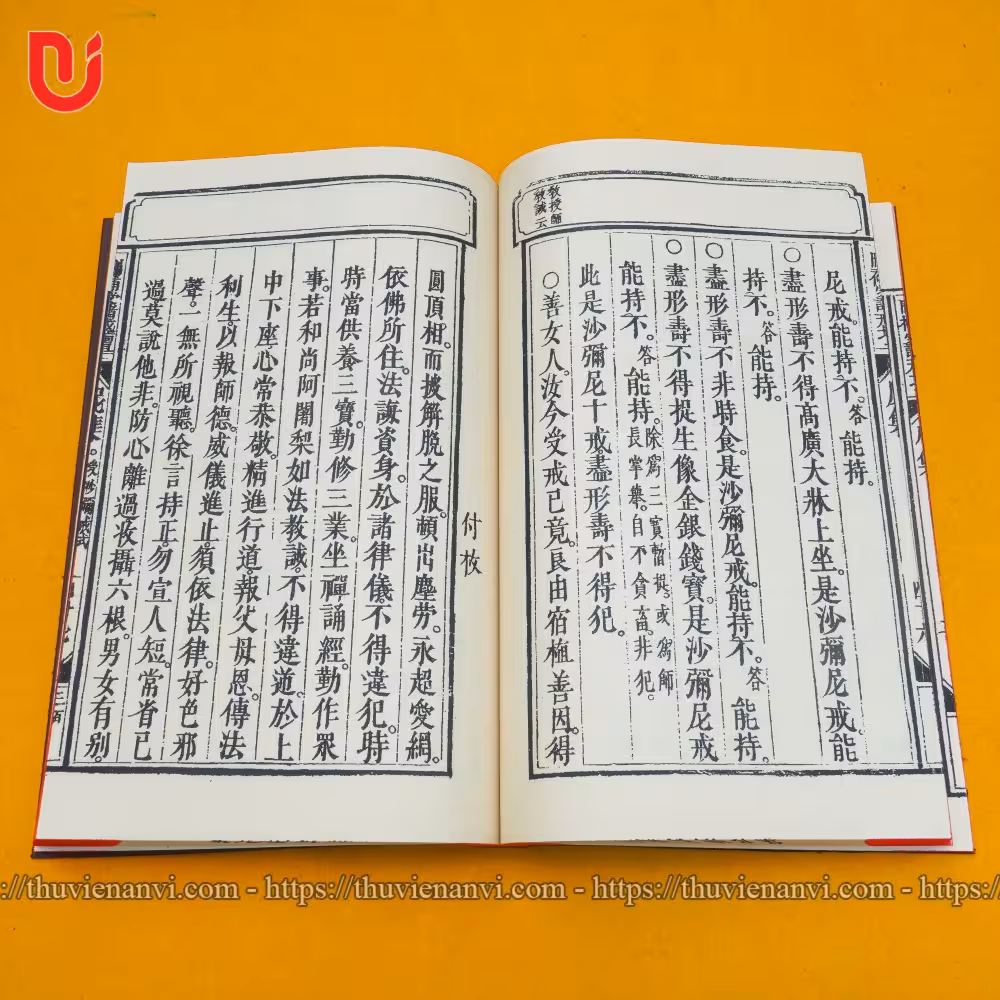 教授師
教誡云
尼戒。能持不。答能持。
○盡形壽不得高廣大牀上坐。是沙彌尼戒。能
持不。答能持。
○盡形壽不非時食。是沙彌尼戒。能持不。答能持。
○盡形壽不得捉生像金銀錢寶。是沙彌尼戒
能持不。答能持。除爲三寶暫捉。或爲師長掌舉。自不貪畜。非犯。
此是沙彌尼十戒。盡形壽不得犯。
○善女人。汝今受戒已竟。良由宿植善因。得
圓頂相。而披解脫之服。頓出塵勞。永超愛網。
依佛所住。法誨資身。於諸律儀。不得違犯。時
時當供養三寶。勤修三業。坐禪誦經。勤作眾
事。若和尚阿闍梨如法教誡。不得違道。於上
中下座。心常恭敬。精進行道。報父母恩。傳法
利生。以報師德。威儀進止。須依法律。好色邪
聲。一無所視聽。徐言持正。勿宣人短。常省己
過。莫說他非。防心離過。收攝六根。男女有別。
付梓
https://thuvienanvi.com - https://thuvienanvi.com - https://thuvienanvi.com